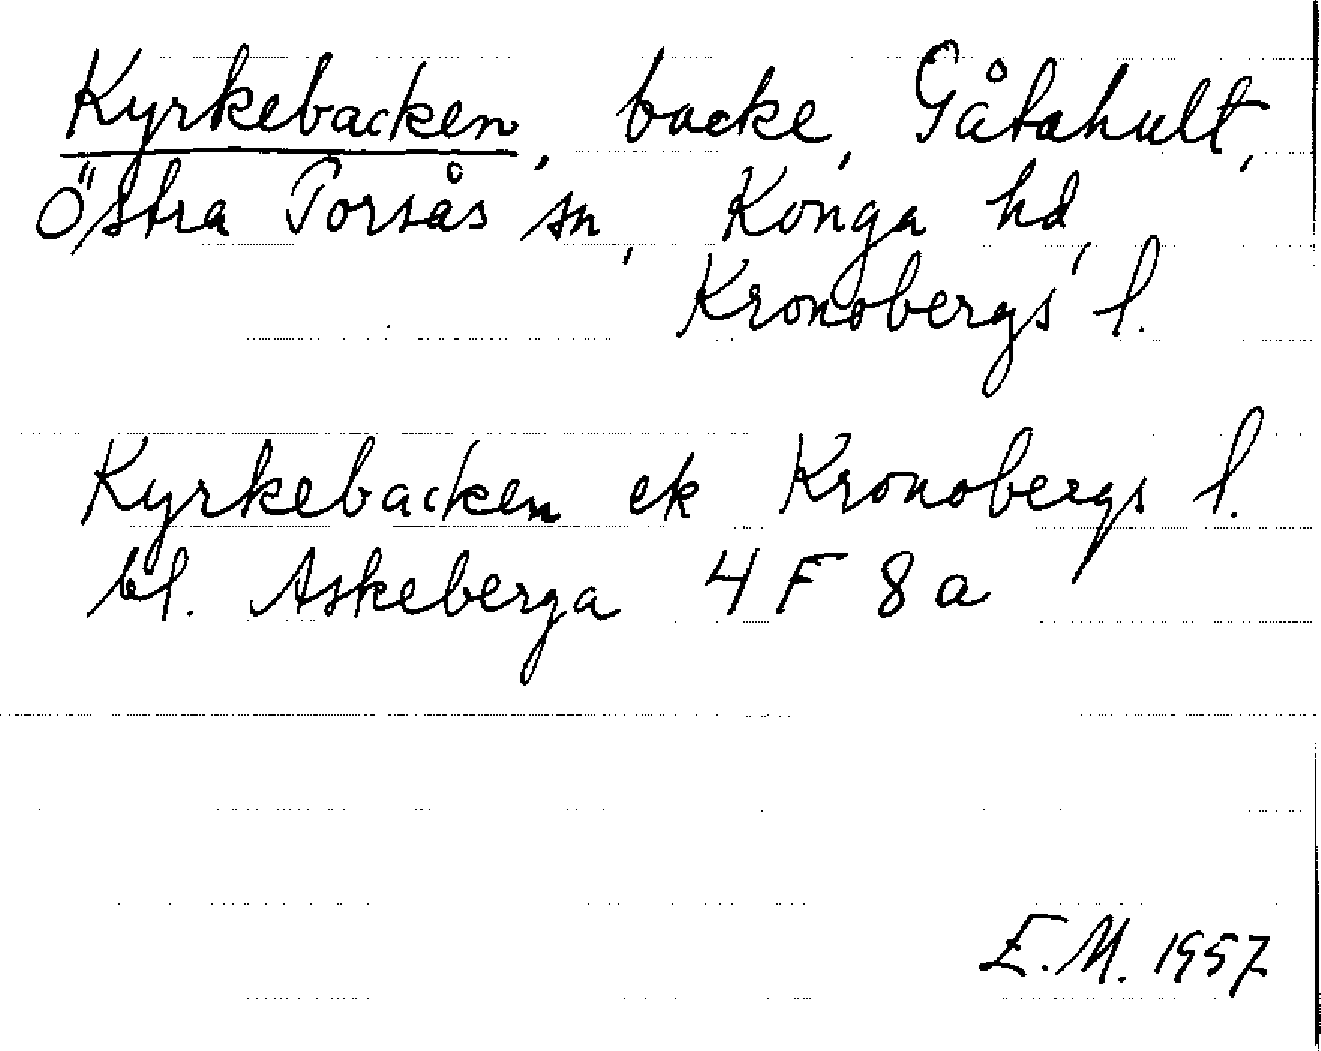 Kyrkebacken, backe, Gåtahult,
Östra Torsås sn, Konga hd,
Kronobergs l.
Kyrkebacken ek Kronobergs l.
bl. Askeberga 4 F 8 a
E.M. 1957